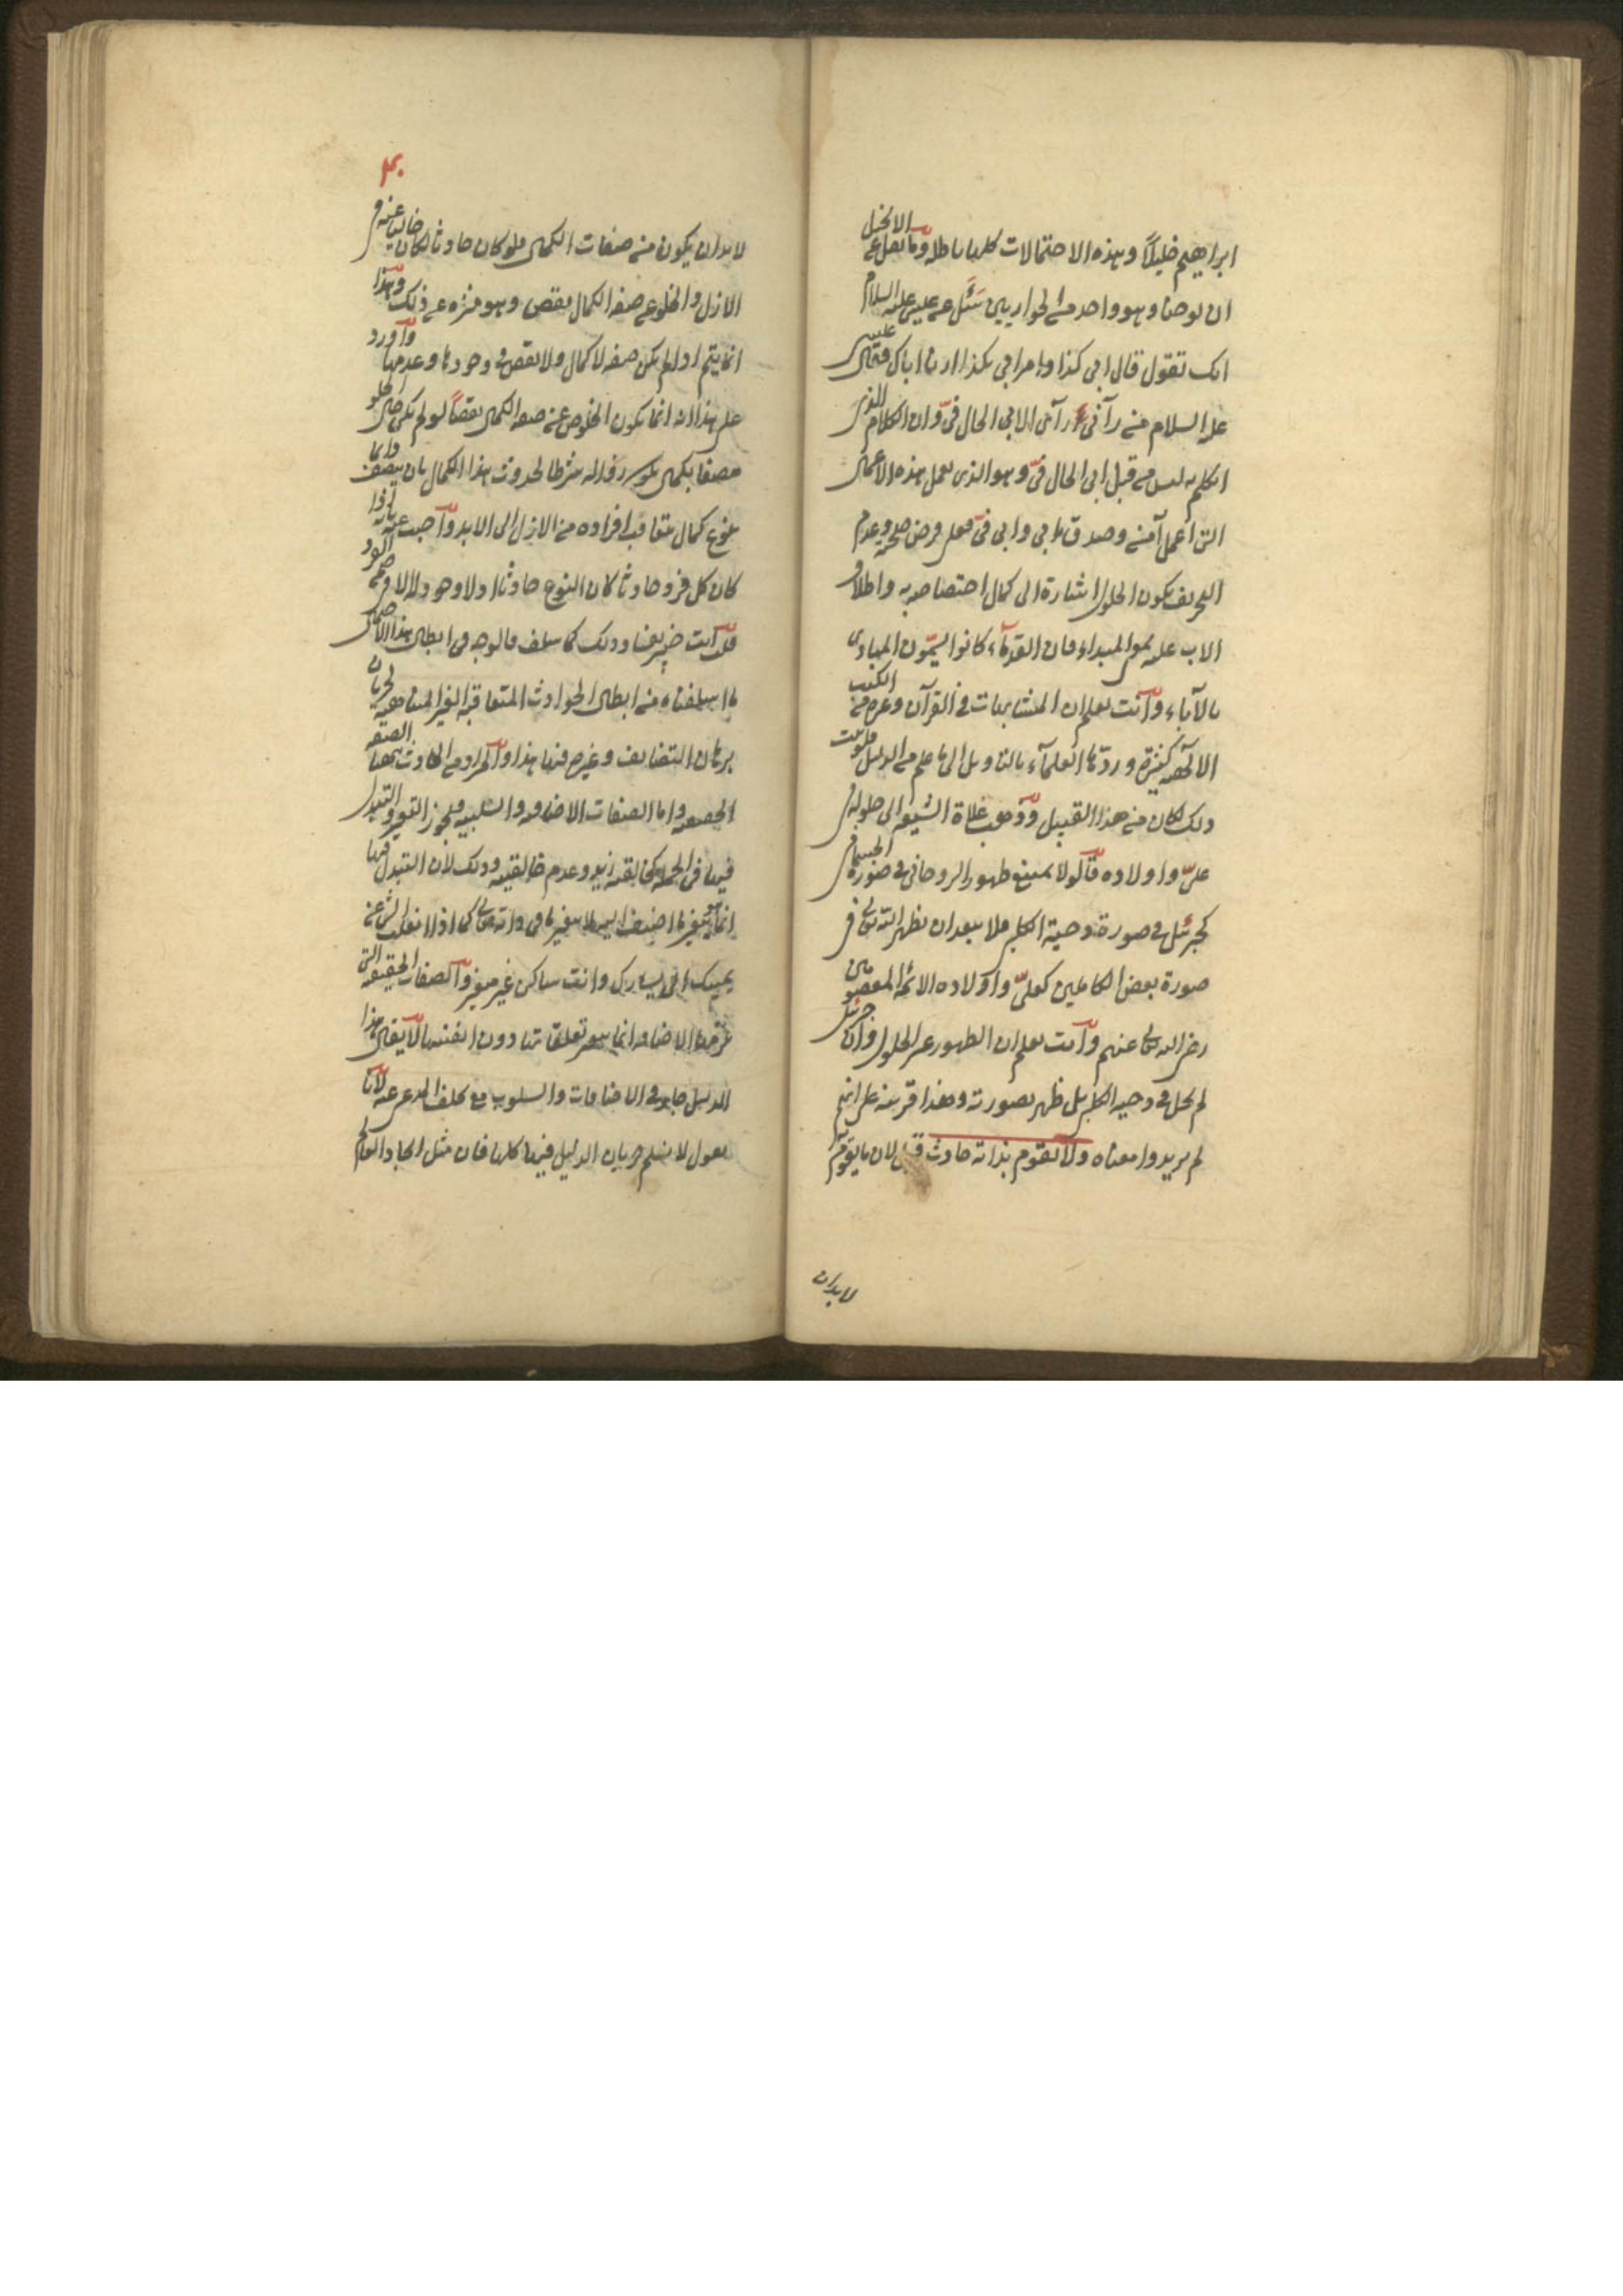 ابراهيم خليلاً وهذه الاحتمالات كلها باطله وما نقل عن الانجيل
ان يوحنا وهو واحد من الحواريين سئل عن عيسى عليه السلام
انك تقول قال ابى كذا وامر ابى بكذا ارنا اباك فقال عيسى
عليه السلام من رآنى فقد رآى الابى الحال فىّ وان الكلام الذى
اتكلم به ليس من قبل ابى الحال فىّ وهو الذى يعمل هذه الاعمال
التى اعمل آمن وصدق بابى وابى فىّ فعلى فرض صحته وعدم
التحريف يكون الحلول اشارة الى كمال اختصاصه به واطلاق
الاب عليه بمعنى المبداء فان القدماء كانوا يسمّون المبادى
بالآباء وانت تعلم ان المتشابهات فى القرآن وغيره من الكتب
الالهيه كثيرة وردّها العلماء بالتاويل الى ما علم من الدليل فلو ثبت
ذلك لكان من هذا القبيل وذهب غلاة الشيعه الى حلوله فى
علىّ واولاده قالوا لا يمتنع ظهور الروحانى فى صورة الجسمانى
كجبرئيل فى صورة دحية الكلبى فلا يبعد ان يظهر الله تعالى فى
صورة بعض الكاملين كعلىّ واولاده الائمة المعصومين
رضى الله تعالى عنهم وانت تعلم ان الظهور غير الحلول وان جبرئيل
لم يحل فى دحية الكلبى بل ظهر بصورته وهذا قرينة على انهم
لم يريدوا معناه ولا يقوم بذاته حادث قيل لان ما يقوم به
لا بد ان
٣٠
لا بد ان يكون من صفات الكمال فلو كان حادثا لكان خاليا عنه فى
الازل والخلو عن صفة الكمال نقص وهو منزه عن ذلك وهذا
انما يتم اذا لم يكن صفة لا كمال ولا نقص فى وجودها وعدمها واورد
على هذا انه انما يكون الخلو عن صفة الكمال نقصاً لو لم يكن حال الخلو
متصفا بكمال يكون زواله شرطا لحدوث هذا الكمال بان يتصف دائما
بنوع كمال متعاقب افراده من الازل الى الابد واجيب عنه بانه اذا
كان كل فرد حادثا كان النوع حادثا اذ لا وجود له الا فى ضمن الفرد
قلت انت خبير بفساد ذلك كما سلف فالوجه فى ابطال هذا الاحتمال
ما اسلفناه من ابطال الحوادث المتعاقبة الغير المتناهية لجريان
برهان التضايف وغيره فيها هذا والمراد من الحادث ههنا الصفة
الحقيقية واما الصفات الاضافيه والسلبيه فيجوز التغير والتبدل
فيها فى الجمله كخالقية زيد وعدم خالقيته وذلك لان التبدل فيها
انما هو بتغير ما اضيف اليه لا بتغير ما فى ذاته تعالى كما اذا انقلب الشئ عن
يمينك الى يسارك وانت ساكن غير متغير والصفات الحقيقية التى
تلزمها الاضافه انما يتغير تعلقاتها دون انفسها لا يقال هذا
الدليل جار فى الاضافات والسلوب مع تخلف المدعى عنه لانا
نقول لا نسلم جريان الدليل فيها كلها فان مثل ايجاد العالم